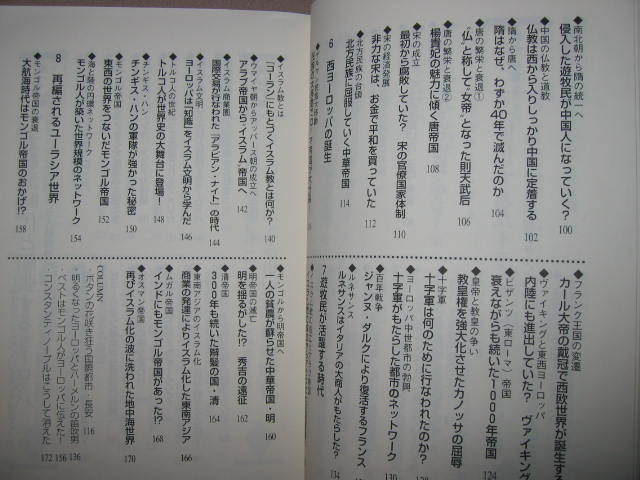 ◆南北朝から隋の統一へ
侵入した遊牧民が中国人になっていく? 100
◆中国の仏教と道教
仏教は西から入りしっかり中国に定着する 102
◆隋から唐へ
隋はなぜ、わずか40年で滅んだのか 104
◆唐の繁栄と衰退①
「仏」と称して“女帝”となった則天武后 106
◆唐の繁栄と衰退②
楊貴妃の魅力に傾く唐帝国 108
◆宋の成立
最初から腐敗していた? 宋の官僚国家体制 110
◆宋の経済発展
非力な宋は、お金で平和を買っていた 112
◆北方民族の台頭
北方民族に屈服していく中華帝国 114
6 西ヨーロッパの誕生
◆フランク王国の変遷
カール大帝の戴冠で西欧世界が誕生する
◆ヴァイキングと東西ヨーロッパ
内陸にも進出していた? ヴァイキング
◆ビザンツ(東ローマ)帝国
衰えながらも続いた1000年帝国 124
◆皇帝と教皇の争い
教皇権を強大化させたカノッサの屈辱
◆十字軍
十字軍は何のために行なわれたのか? 128
◆ヨーロッパ中世都市の勃興
十字軍がもたらした都市のネットワーク 130
◆百年戦争
ジャンヌ・ダルクにより復活するフランス
◆ルネサンス
ルネサンスはイタリアの大商人がもたらした? 134
7 遊牧民が活躍する時代
◆イスラム教とは
『コーラン』にもとづくイスラム教とは何か? 140
◆ウマイヤ朝からアッバース朝の成立へ
アラブ帝国から「イスラム」帝国へ 142
◆イスラム商業圏
国際交易が行なわれた「アラビアン・ナイト」の時代 144
◆イスラム文明
ヨーロッパは“知識”をイスラム文明から学んだ 146
◆トルコ人の世紀
トルコ人が世界史の大舞台に登場! 148
◆チンギス・ハン
チンギス・ハンの軍隊が強かった秘密 150
◆モンゴル帝国
東西の世界をつないだモンゴル帝国 152
◆海と陸の円環ネットワーク
モンゴル人が築いた世界規模のネットワーク 154
8 再編されるユーラシア世界
◆モンゴル帝国の衰退
大航海時代はモンゴル帝国のおかげ!? 158
◆モンゴルから明帝国へ
一人の貧農が蘇らせた中華帝国・明 160
◆明帝国の滅亡
明を揺るがした!? 秀吉の遠征 162
◆清帝国
300年も続いた辮髪の国・清 164
◆東南アジアのイスラム化
商業の発達によりイスラム化した東南アジア 166
◆ムガル帝国
インドにもモンゴル帝国があった!? 168
◆オスマン帝国
再びイスラム化の波に洗われた地中海世界 170
COLUMN
・ボタンの花咲き狂う国際都市・長安 116
・明るくなったヨーロッパとハーメルンの笛吹男 136
・ペストはモンゴル人がヨーロッパに伝えた! 156
・コンスタンティノープルはこうして消えた 172